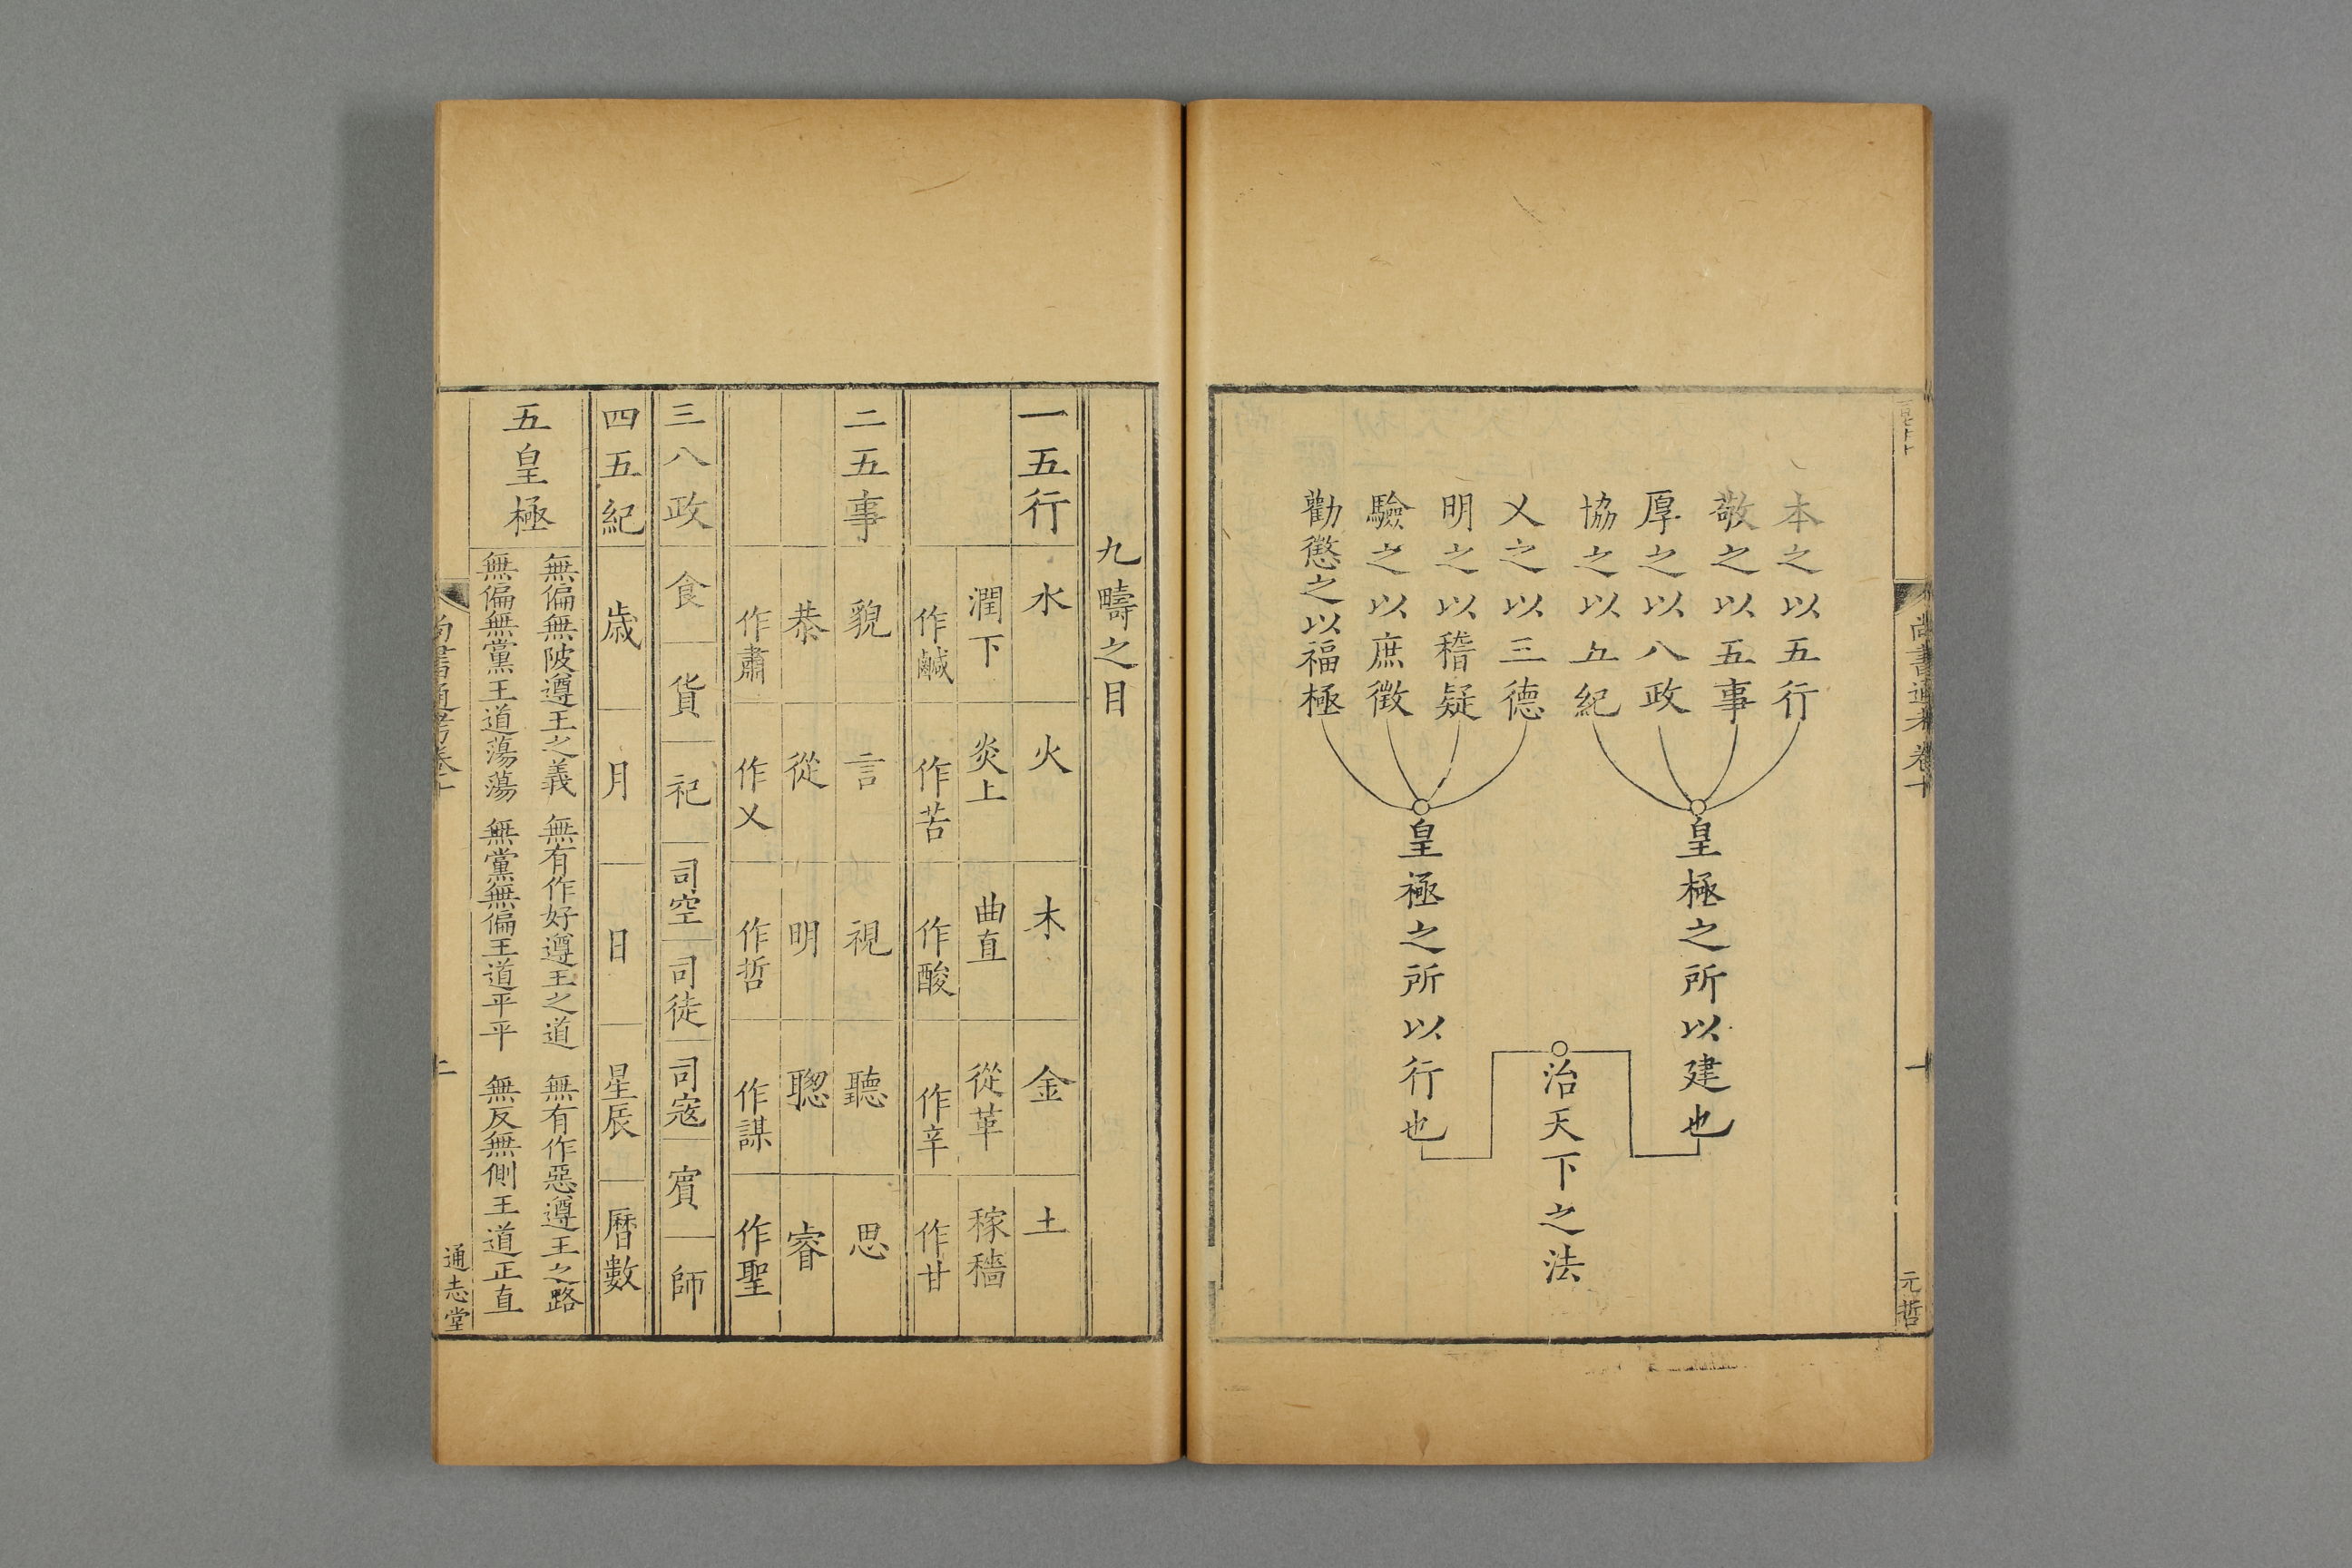 尚書通考卷十
十
元哲
本之以五行
敬之以五事
厚之以八政
協之以五紀
乂之以三德
明之以稽疑
驗之以庶徵
勸懲之以福極
皇極之所以建也
皇極之所以行也
治天下之法
九疇之目
一五行
水
火
木
金
土
潤下
炎上
曲直
從革
稼穡
作鹹
作苦
作酸
作辛
作甘
二五事
貌
言
視
聽
思
恭
從
明
聦
睿
作肅
作乂
作哲
作謀
作聖
三八政
食
貨
祀
司空
司徒
司寇
賓
師
四五紀
歲
月
日
星辰
曆數
五皇極
無偏無陂遵王之義
無有作好遵王之道
無有作惡遵王之路
無偏無黨王道蕩蕩
無黨無偏王道平平
無反無側王道正直
尚書通考卷十
通志堂